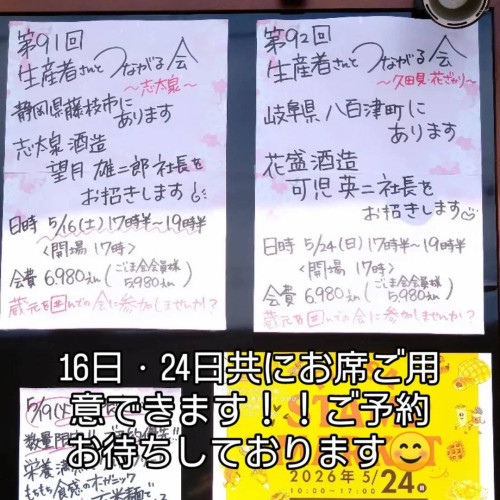 第91回
生産者さんとつながる会
〜志太泉〜
静岡県藤枝市に
あります
志太泉酒造
望月 雄二郎 社長を
お招きします
日時 5/16(土) 17時半〜19時半
<開場 17時>
会費 6.980yen (ごしま会会員様 5.980yen)
蔵元を囲んでの会に参加しませんか?
第92回
生産者さんとつながる会
岐阜県 八百津町に
あります
花盛酒造
可児 英二 社長を
お招きします
日時 5/24(日) 17時半〜19時半
<開場 17時>
会費 6.980yen (ごしま会会員様 5.980yen)
蔵元を囲んでの会に参加しませんか?
16日・24日共にお席ご用
意できます!!ご予約
お待ちしております😊
5/19(火)
数量限
栄養満
もちもち食感のオーガニック
玄米麺で
2026年 5/24
10:00〜17:00